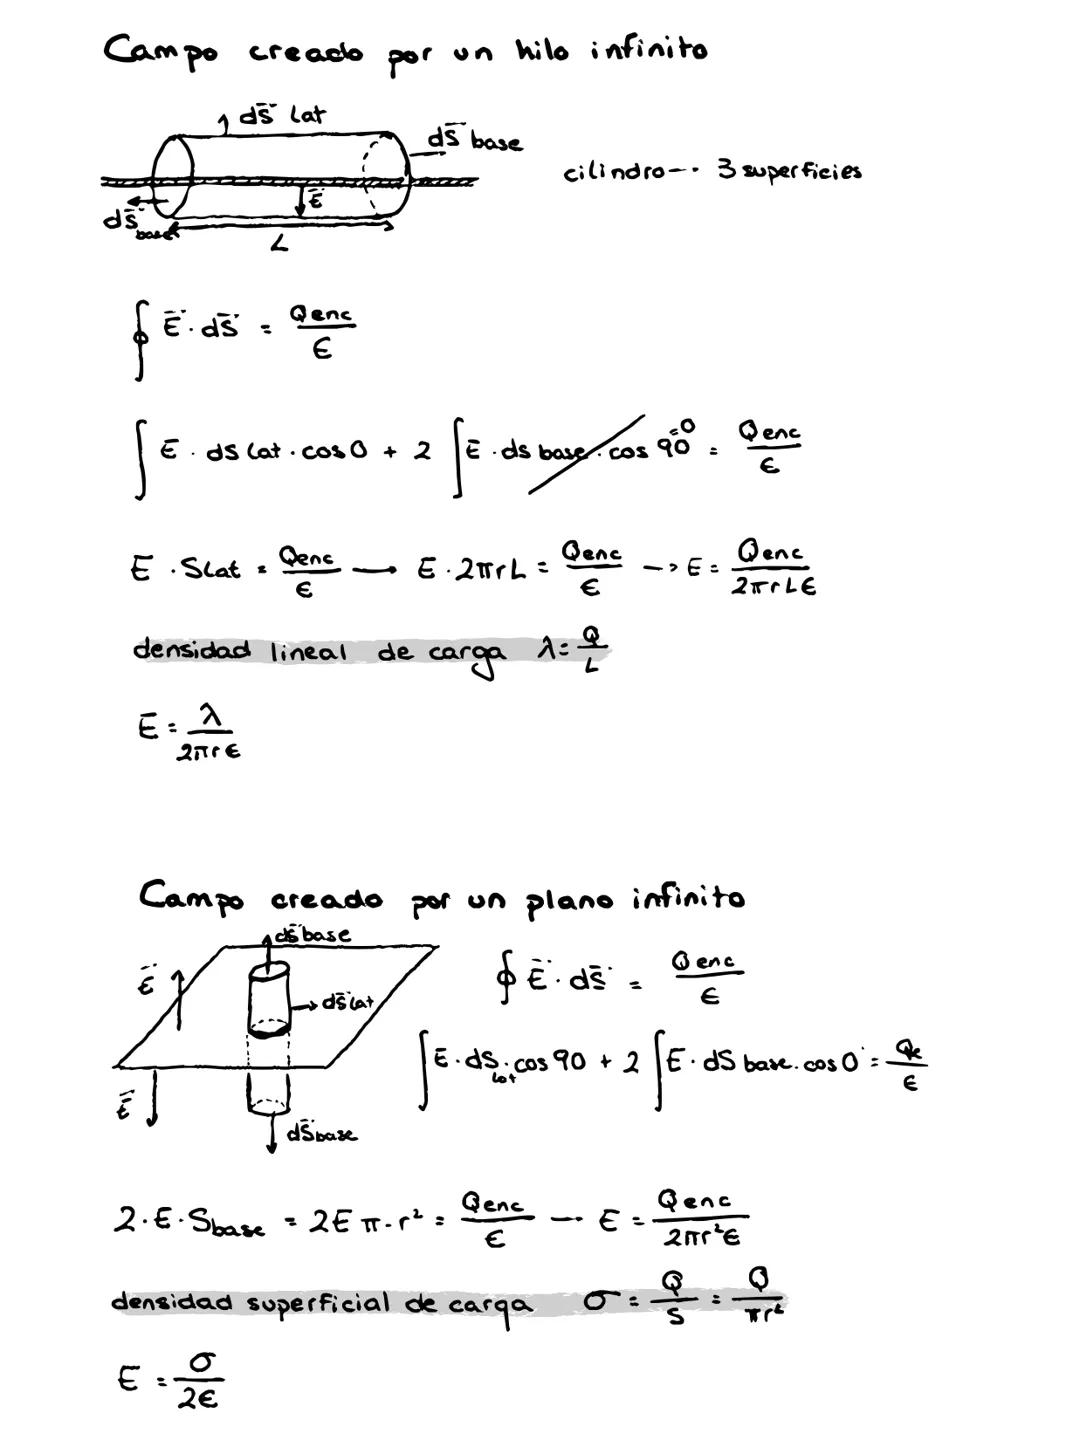 Campo creado por un hilo infinito
dS̄ lat
dS̄ base
cilindro -- 3 superficies
Ē
dS̄ base
L
∮ Ē · dS̄ = Qenc/ϵ
∫ E · ds lat · cos 0 + 2 ∫ E · ds base · cos 90 =0 = Qenc/ϵ
E · Slat = Qenc/ϵ → E · 2πrL = Qenc/ϵ → E = Qenc/2πrLϵ
densidad lineal de carga λ = Q/L
E = λ/2πrϵ
Campo creado por un plano infinito
dS̄ base
Ē
dS̄ lat
∮ Ē · dS̄ = Qenc/ϵ
∫ E · dS lat · cos 90 + 2 ∫ E · dS base · cos 0 = Qe/ϵ
Ē
dS̄ base
2 · E · Sbase = 2E π · r² = Qenc/ϵ — E = Qenc/2πr²ϵ
densidad superficial de carga σ = Q/S = Q/πr²
E = σ/2ϵ